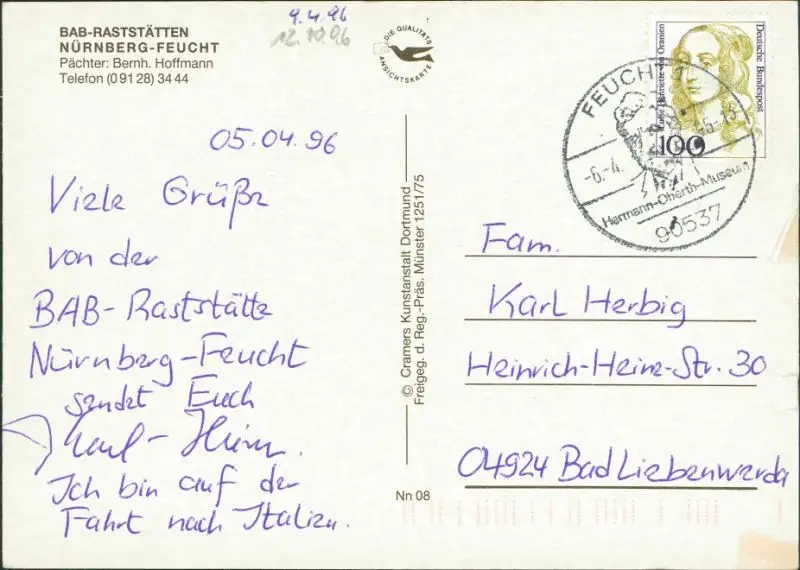 BAB-RASTSTÄTTEN
NÜRNBERG-FEUCHT
Pächter: Bernh. Hoffmann
Telefon (0 91 28) 34 44
9.4.96
12.10.96
DIE QUALITÄTS
ANSICHTSKARTE
05.04.96
Viele Grüße
von der
BAB-Raststätte
Nürnberg-Feucht
sendet Euch
Karl-Heinz.
Ich bin auf der
Fahrt nach Italien.
© Cramers Kunstanstalt Dortmund
Freigeg. d. Reg.-Präs. Münster 1251/75
Nn 08
Deutsche Bundespost
Henriette von Oranien
100
FEUCHT
-6.-4.
Hermann-Oberth-Museum
90537
Fam.
Karl Herbig
Heinrich-Heine-Str. 30
04924 Bad Liebenwerda